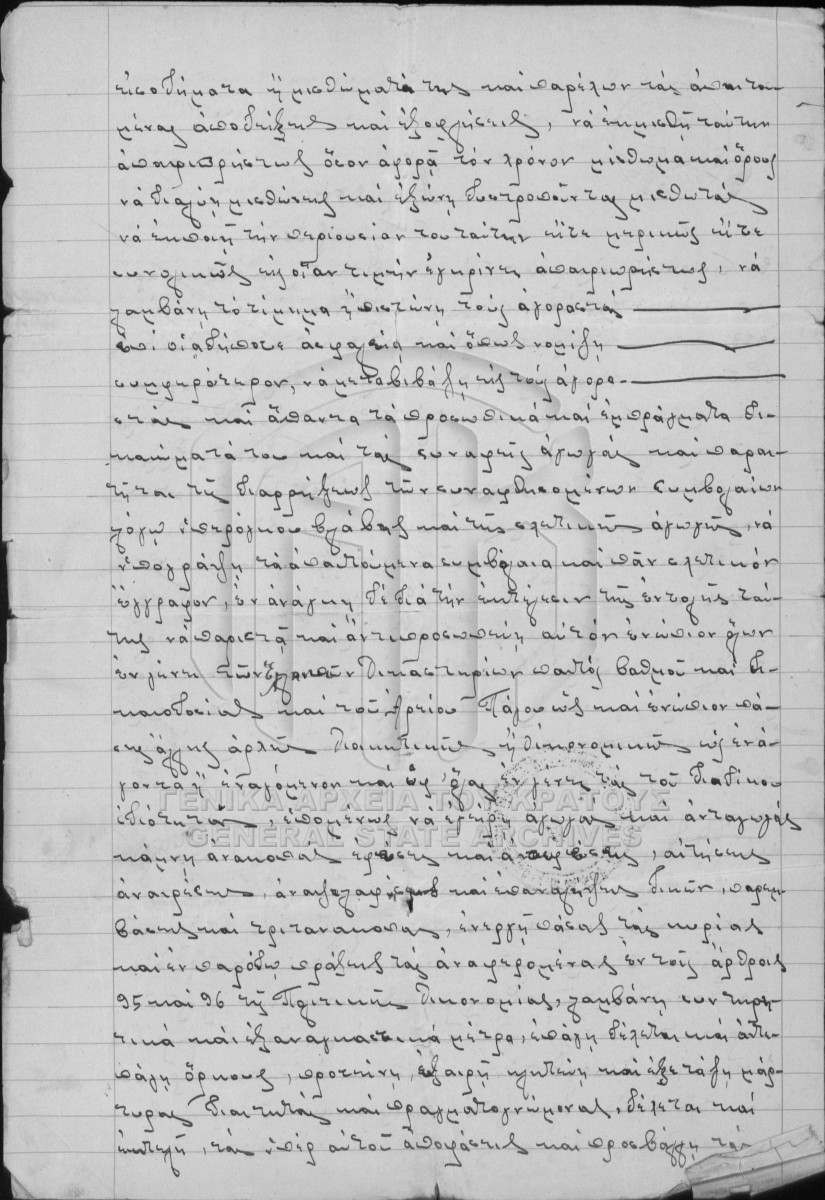 εἰσοδήματα ἢ μισθώματά της καὶ παρέχων τὰς ἀπαιτου
μένας ἀποδείξεις καὶ ἐξοφλήσεις, νὰ ἐκμισθῇ ταύτην
ἀπεριορίστως ὅσον ἀφορᾷ τὸν χρόνον μίσθωμα καὶ ὅρους
νὰ διαλύῃ μισθώσεις καὶ ἐξώνῃ δυστροποῦντας μισθωτάς
νὰ ἐκποιῇ τὴν περιουσίαν του ταύτην εἴτε μερικῶς εἴτε
συνολικῶς εἰς οἵαν τιμὴν ἐγκρίνει ἀπεριορίστως, νὰ
λαμβάνῃ τὸ τίμημα ἢ πιστώνῃ τοὺς ἀγοραστὰς
ἐπὶ οἱᾳδήποτε ἀσφαλείᾳ καὶ ὅπως νομίζῃ
συμφερώτερον, νὰ μεταβιβάζῃ εἰς τοὺς ἀγορα-
στὰς καὶ ἅπαντα τὰ προσωπικὰ καὶ ἐμπράγματα δι-
καιώματά του καὶ τὰς συναφεῖς ἀγωγὰς καὶ παραι-
τῆται τῆς διαρρήξεως τῶν συναφθησομένων συμβολαίων
λόγῳ ὑπερόγκου βλάβης καὶ τῆς σχετικῆς ἀγωγῆς, νὰ
ὑπογράφῃ τὰ ἀπαιτούμενα συμβόλαια καὶ πᾶν σχετικὸν
ἔγγραφον, ἐν ἀνάγκῃ δὲ διὰ τὴν ἐκτέλεσιν τῆς ἐντολῆς ταύ-
της νὰ παριστᾷ καὶ ἀντιπροσωπεύῃ αὐτὸν ἐνώπιον ὅλων
ἐν γένει τῶν Ἑλληνικῶν Δικαστηρίων παντὸς βαθμοῦ καὶ δι-
καιοδοσίας καὶ τοῦ Ἀρείου Πάγου ὡς καὶ ἐνώπιον πά-
σης ἄλλης ἀρχῆς Διοικητικῆς ἢ Οἰκονομικῆς ὡς ἐνά-
γοντα ἢ ἐναγόμενον καὶ ὑφ' ὅλας ἐν γένει τὰς τοῦ διαδίκου
ἰδιότητας, ἑπομένως νὰ ἐγείρῃ ἀγωγὰς καὶ ἀνταγωγὰς
κάμνῃ ἀνακοπὰς ἐφέσεις καὶ ἀντεφέσεις, αἰτήσεις
ἀναιρέσεις, ἀναψηλαφήσεως καὶ ἐπαναλήψεις δικῶν, παρεμ-
βάσεις καὶ τριτανακοπάς, ἐνεργῇ πάσας τὰς κυρίας
καὶ ἐν παρόδῳ πράξεις τὰς ἀναφερομένας ἐν τοῖς ἄρθροις
95 καὶ 96 τῆς Πολιτικῆς Δικονομίας, λαμβάνῃ συντηρη-
τικὰ καὶ ἐξαναγκαστικὰ μέτρα, ἐπάγῃ δέχεται καὶ ἀντε-
πάγῃ ὅρκους, προτείνῃ, ἐξαιρῇ κλητεύῃ καὶ ἐξετάζῃ μάρ-
τυρας διαιτητὰς καὶ πραγματογνώμονας, δέχεται καὶ
ἐκτελῇ, τὰς ὑπὲρ αὐτοῦ ἀποφάσεις καὶ προσβάλλῃ τὰς
ΓΕΝΙΚΑ ΑΡΧΕΙΑ ΤΟΥ ΚΡΑΤΟΥΣ
GENERAL STATE ARCHIVES